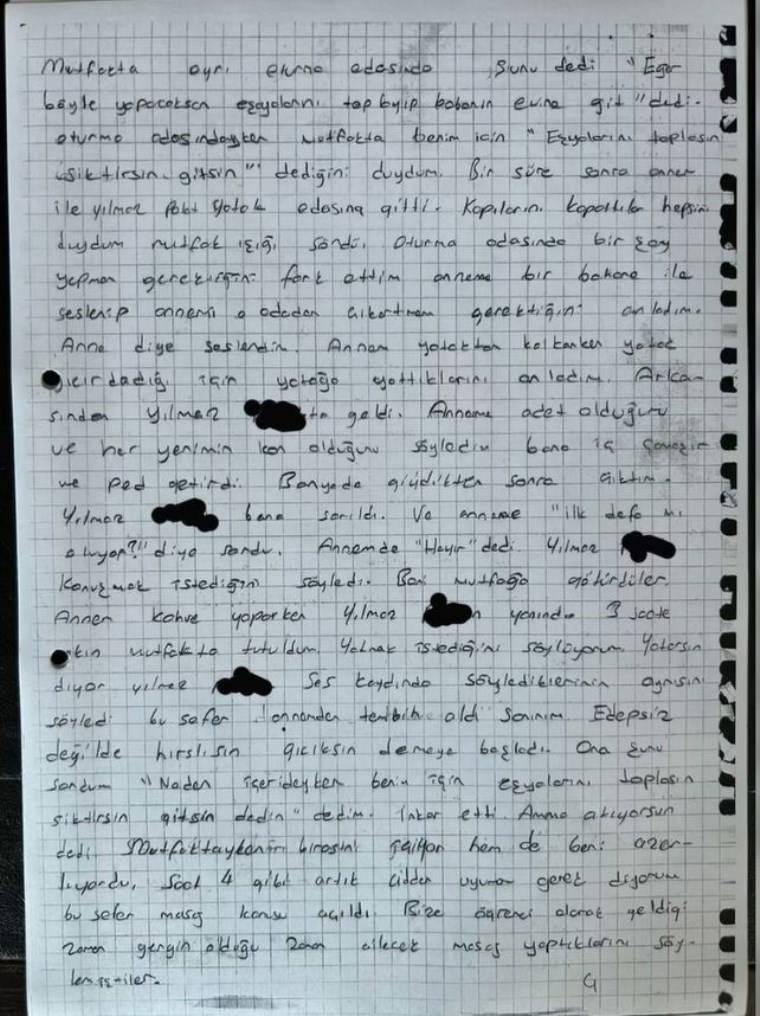 Mutfakta ayrı oturma odasında şunu dedi "Eğer
böyle yapacaksan eşyalarını toplayıp babanın evine git" dedi.
oturma odasındayken mutfakta benim için "Eşyalarını toplasın
siktirsin gitsin" dediğini duydum. Bir süre sonra annem
ile yılmaz yatak odasına gitti. Kapıların kapattılar hepsini
duydum mutfak ışığı söndü. Oturma odasında bir şey
yapmam gerektiğini fark ettim anneme bir bahane ile
seslenip annemi o odadan çıkartmam gerektiğini anladım.
Anne diye seslendim. Annem yataktan kalkarken yatak
gıcırdadığı için yatağa yattıklarını anladım. Arka-
sından Yılmaz geldi. Anneme adet olduğumu
ve her yerimin kan olduğunu söyledim bana iç çamaşır
ve ped getirdi. Banyoda giyindikten sonra çıktım.
Yılmaz bana sarıldı. Ve anneme "ilk defa mı
oluyor?!" diye sordu. Annemde "Hayır" dedi. Yılmaz
konuşmak istediğini söyledi. Beni mutfağa götürdüler.
Annem kahve yaparken Yılmaz yanında 3 saate
yakın mutfakta tutuldum. Yatmak istediğimi söylüyorum. Yatarsın
diyor yılmaz Ses kaydında söylediklerinin aynısını
söyledi bu sefer annemden tembih aldı sanırım. Edepsiz
değilde hırslısın gıcıksın demeye başladı. Ona şunu
sordum "Neden içerideyken benim için eşyalarını toplasın
siktirsin gitsin dedin" dedim. İnkar etti. Amma atıyorsun
dedi. Mutfaktayken birasını içiyor hem de beni azar-
lıyordu. Saat 4 gibi artık cidden uyumam gerek diyorum
bu sefer masaj konusu açıldı. Bize öğrenci olarak geldiği
zaman gergin olduğu zaman ailecek masaj yaptıklarını söy-
lemiştiler.